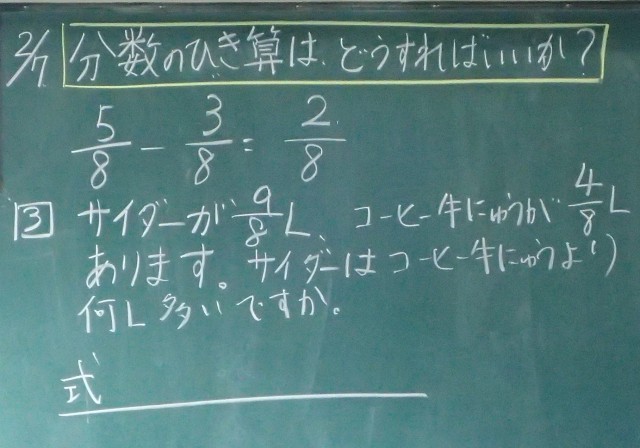 2/7 分数のひき算は、どうすればいいか?
5/8 - 3/8 = 2/8
3 サイダーが 9/8 L、コーヒー牛にゅうが 4/8 L
あります。サイダーはコーヒー牛にゅうより
何L多いですか。
式